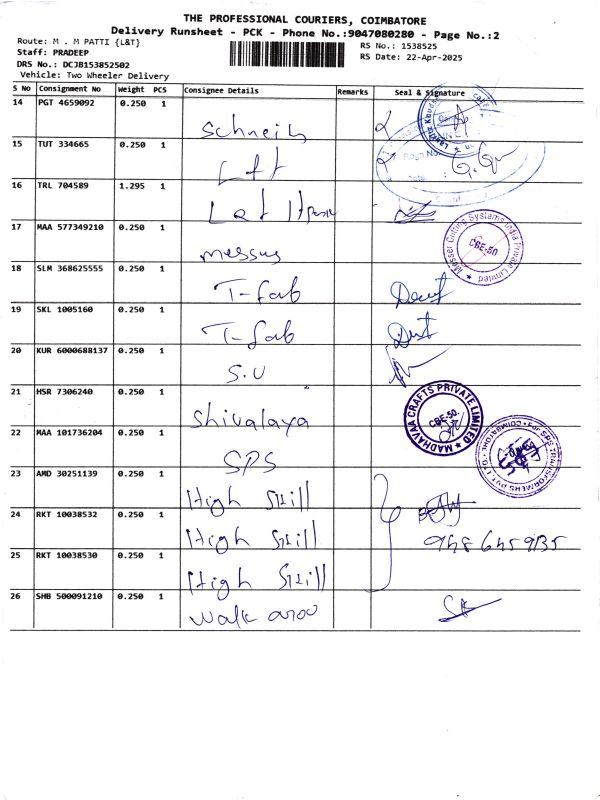 THE PROFESSIONAL COURIERS, COIMBATORE
Delivery Runsheet - PCK - Phone No.:9047080280 - Page No.:2
Route: M . M PATTI {L&T}
RS No.: 1538525
Staff: PRADEEP
RS Date: 22-Apr-2025
DRS No.: DCJB153852502
Vehicle: Two Wheeler Delivery
S No Consignment No Weight PCS Consignee Details Remarks Seal & Signature
14 PGT 4659092 0.250 1
15 TUT 334665 0.250 1 L&t
16 TRL 704589 1.295 1 L&t
17 MAA 577349210 0.250 1 messer
Messer Cutting Systems India Private Limited CBE-50
18 SLM 368625555 0.250 1 T-fab
19 SKL 1005160 0.250 1 T-fab
20 KUR 6000688137 0.250 1 S.U
21 HSR 7306240 0.250 1 Shivalaya
MADHAVANA CRAFTS PRIVATE LIMITED CBE-50.
22 MAA 101736204 0.250 1 SPS
For SPS TRANSFORMERS PVT LTD. COIMBATORE
23 AMD 30251139 0.250 1 High Skill
24 RKT 10038532 0.250 1 High Skill
25 RKT 10038530 0.250 1 High Skill
26 SHB 500091210 0.250 1 walk